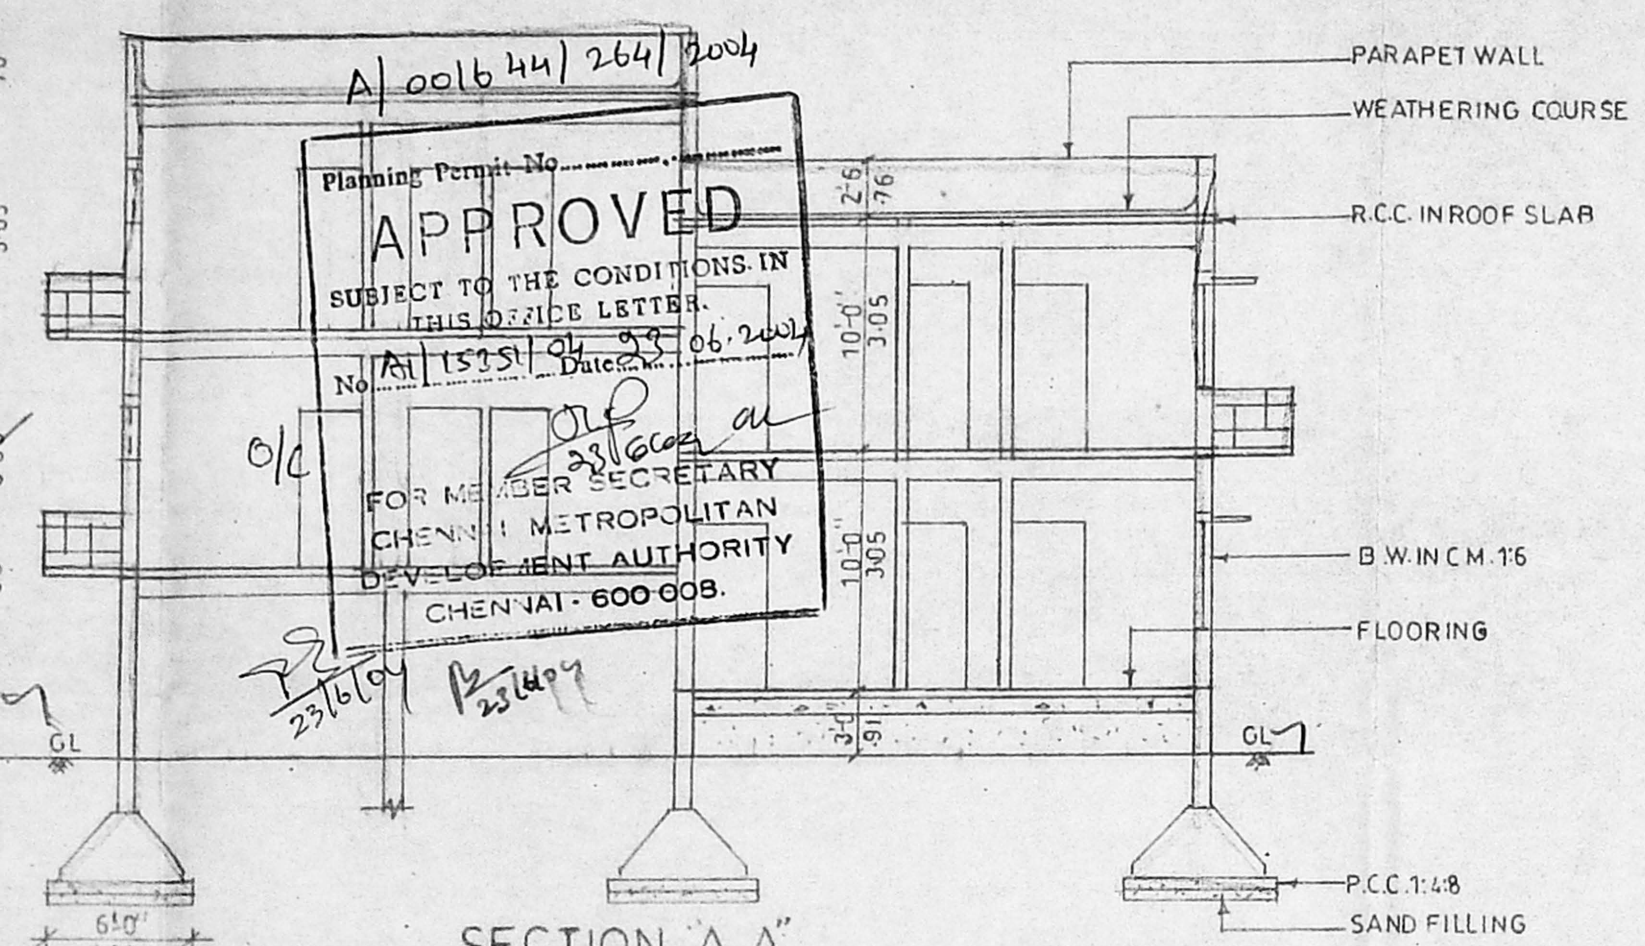 A/001644/264/2004
Planning Permit No
APPROVED
SUBJECT TO THE CONDITIONS IN
THIS OFFICE LETTER.
No A1/15351/04 Date 23.06.2004
23/6/2004
FOR MEMBER SECRETARY
CHENNAI METROPOLITAN
DEVELOPMENT AUTHORITY
CHENNAI - 600 008.
23/6/04
O/C
PARAPET WALL
WEATHERING COURSE
R.C.C. IN ROOF SLAB
B.W. IN C M. 1:6
FLOORING
P.C.C. 1:4:8
SAND FILLING
2'-6
.76
10'-0"
3.05
10'-0"
3.05
3'-0
.91
GL
GL
6'-0"
SECTION "A A"